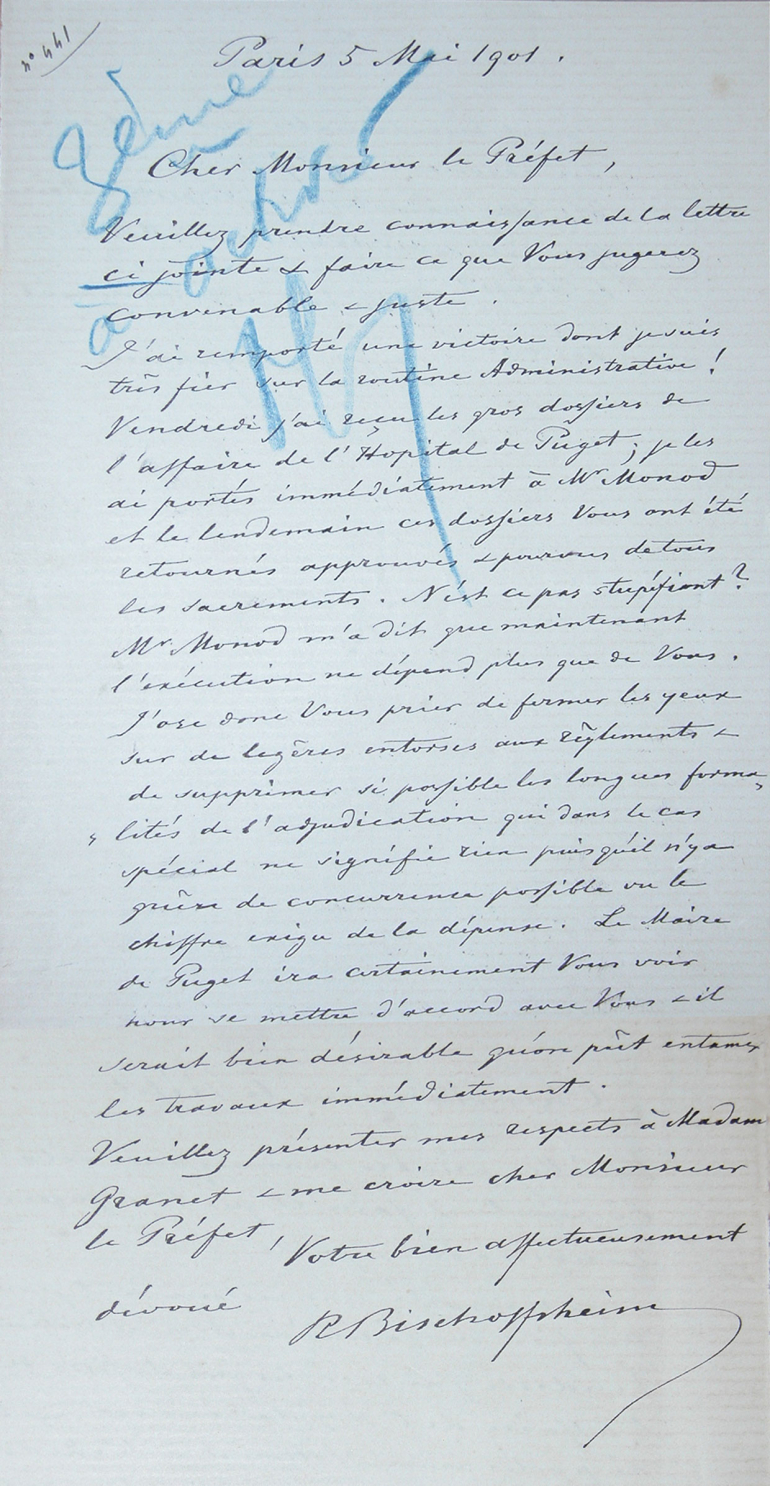 n° 441
Paris 5 Mai 1901.
8ème
Cher Monsieur le Préfet,
Veuillez prendre connaissance de la lettre
ci jointe & faire ce que Vous jugerez
convenable & juste.
à
J'ai remporté une victoire dont je suis
très fier sur la routine Administrative!
Vendredi j'ai reçu les gros dossiers de
l'affaire de l'Hopital de Puget; je les
ai portés immédiatement à Mr Monod
et le lendemain ces dossiers Vous ont été
retournés approuvés & pourvus de tous
les sacrements. N'est ce pas stupéfiant?
Mr Monod m'a dit que maintenant
l'exécution ne dépend plus que de Vous.
J'ose donc Vous prier de fermer les yeux
sur de legères entorses aux règlements &
de supprimer si possible les longues forma„
„lités de l'adjudication qui dans le cas
spécial ne signifie rien puisqu'il n'y a
guère de concurrence possible vu le
chiffre exigu de la dépense. Le Maire
de Puget ira certainement Vous voir
pour se mettre d'accord avec Vous & il
serait bien désirable qu'on pût entamer
les travaux immédiatement.
Veuillez présenter mes respects à Madam
Granet & me croire cher Monsieur
le Préfet, Votre bien affectueusement
dévoué
R Bischoffsheim